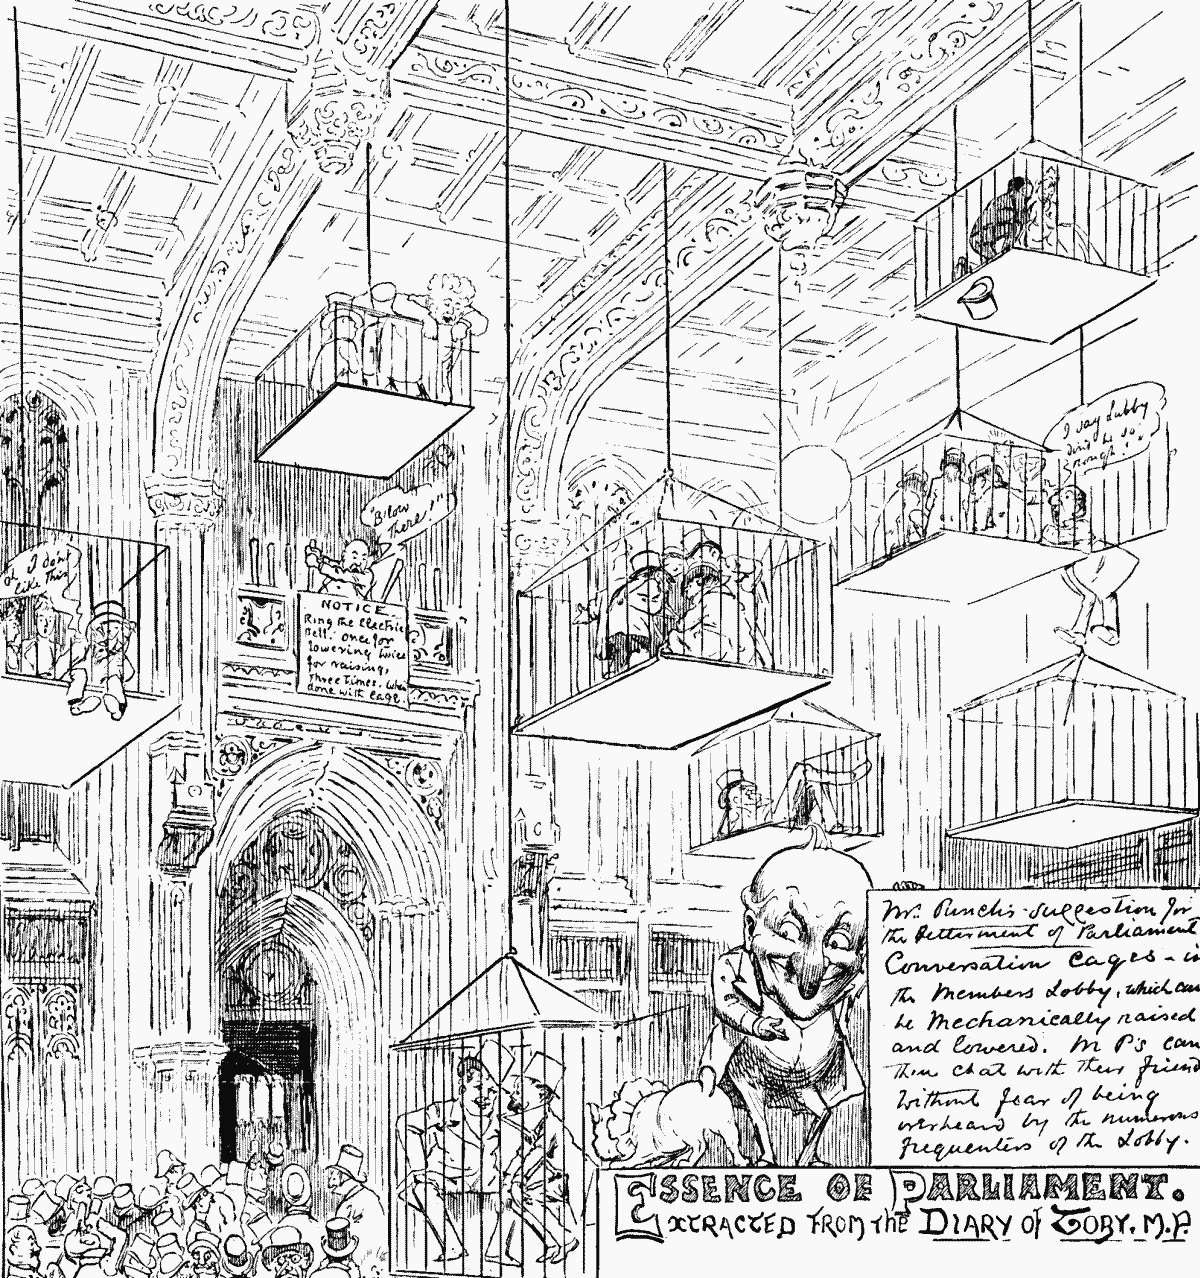 I say Labby
don't be so
rough!"
"B'low
there!"
I don't
like this
NOTICE.
Ring the Electric
Bell: once for
lowering twice
for raising,
Three Times. When
done with cage.
Mr. Punch's suggestion for
the Betterment of Parliament
Conversation Cages – in
the Members Lobby, which can
be Mechanically raised
and lowered. M P's can
then chat with their friend
without fear of being
overheard by the numerous
frequenters of the Lobby.
ESSENCE OF PARLIAMENT.
EXTRACTED FROM THE DIARY OF TOBY. M.P.